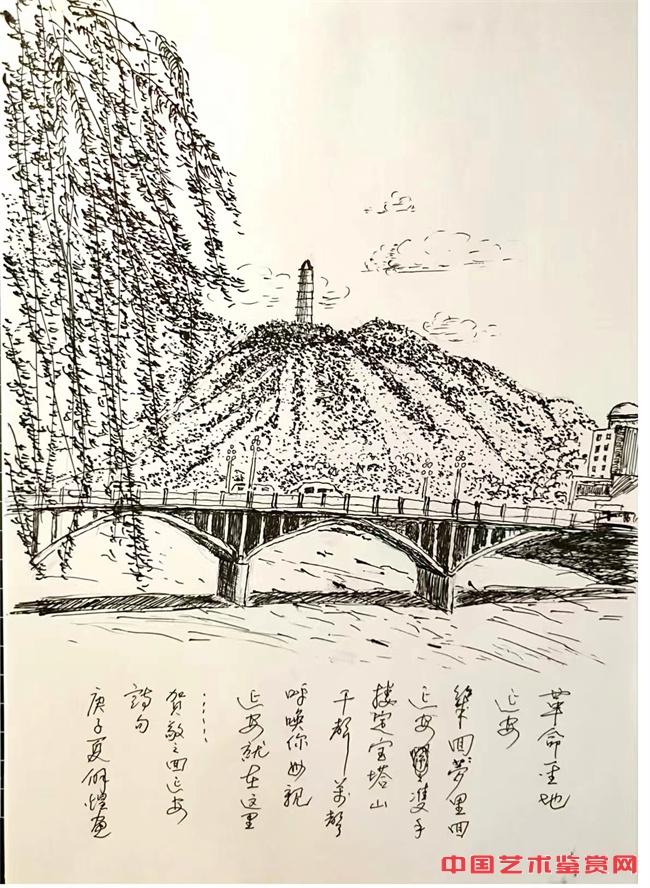 革命圣地
延安
幾回夢里回
延安 雙手
搂定宝塔山
千声萬声
呼唤你母親
延安就在这里
……
贺敬之回延安
詩句
庚子夏 画
中国艺术鉴赏网